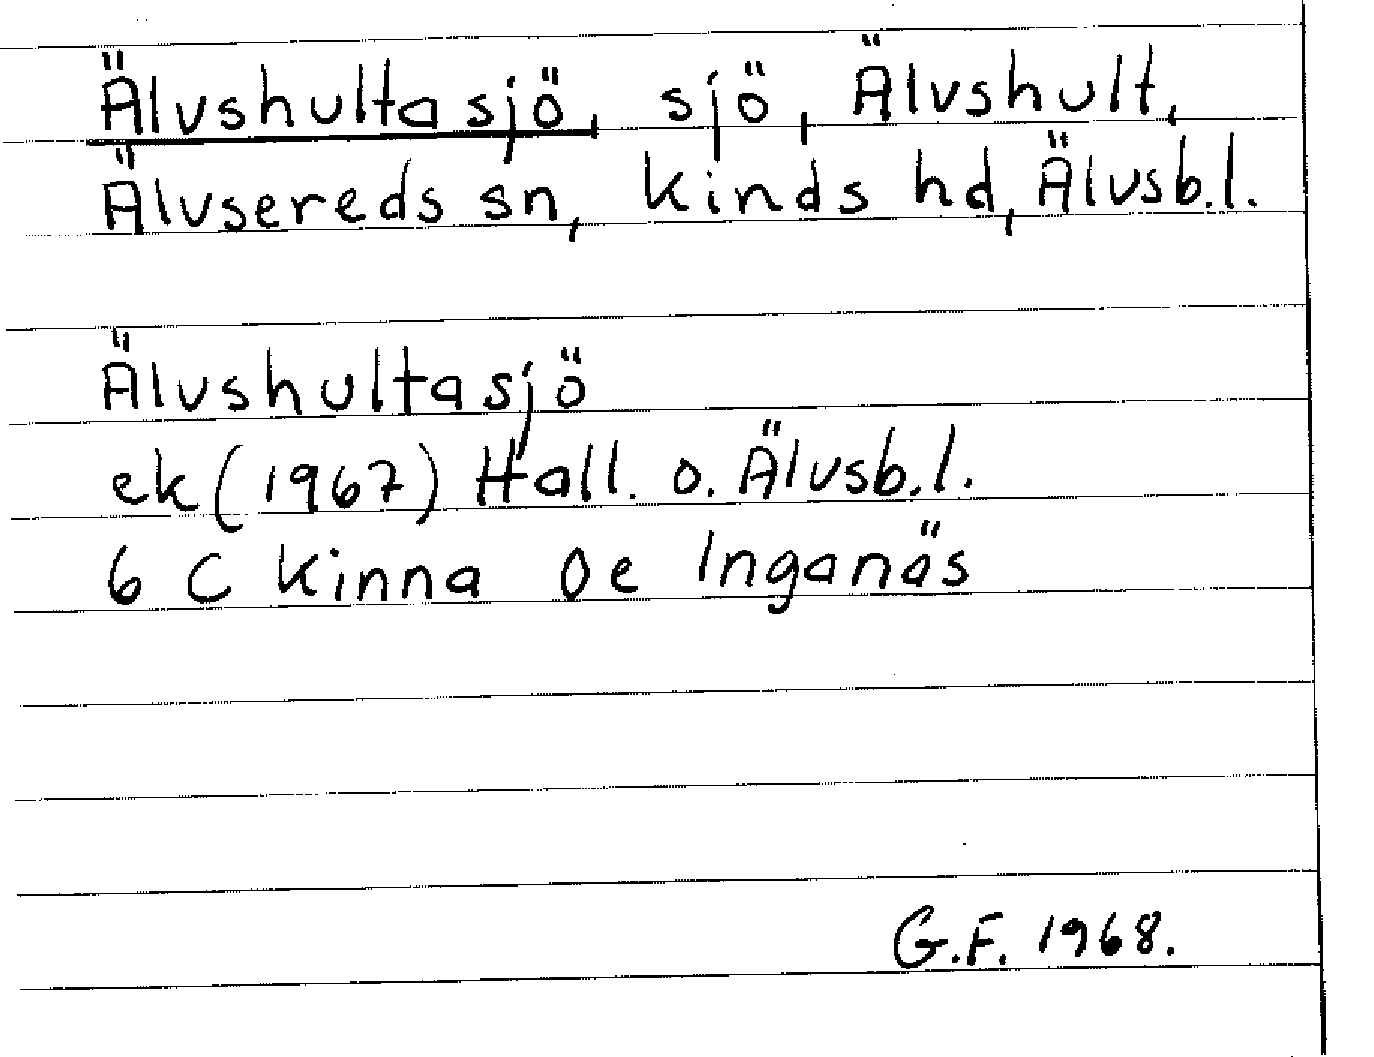 Älvshultasjö, sjö, Älvshult,
Älvsereds sn, Kinds hd, Älvsb.l.
Älvshultasjö
ek (1967) Hall. o. Älvsb.l.
6 C Kinna 0e Inganäs
G.F. 1968.